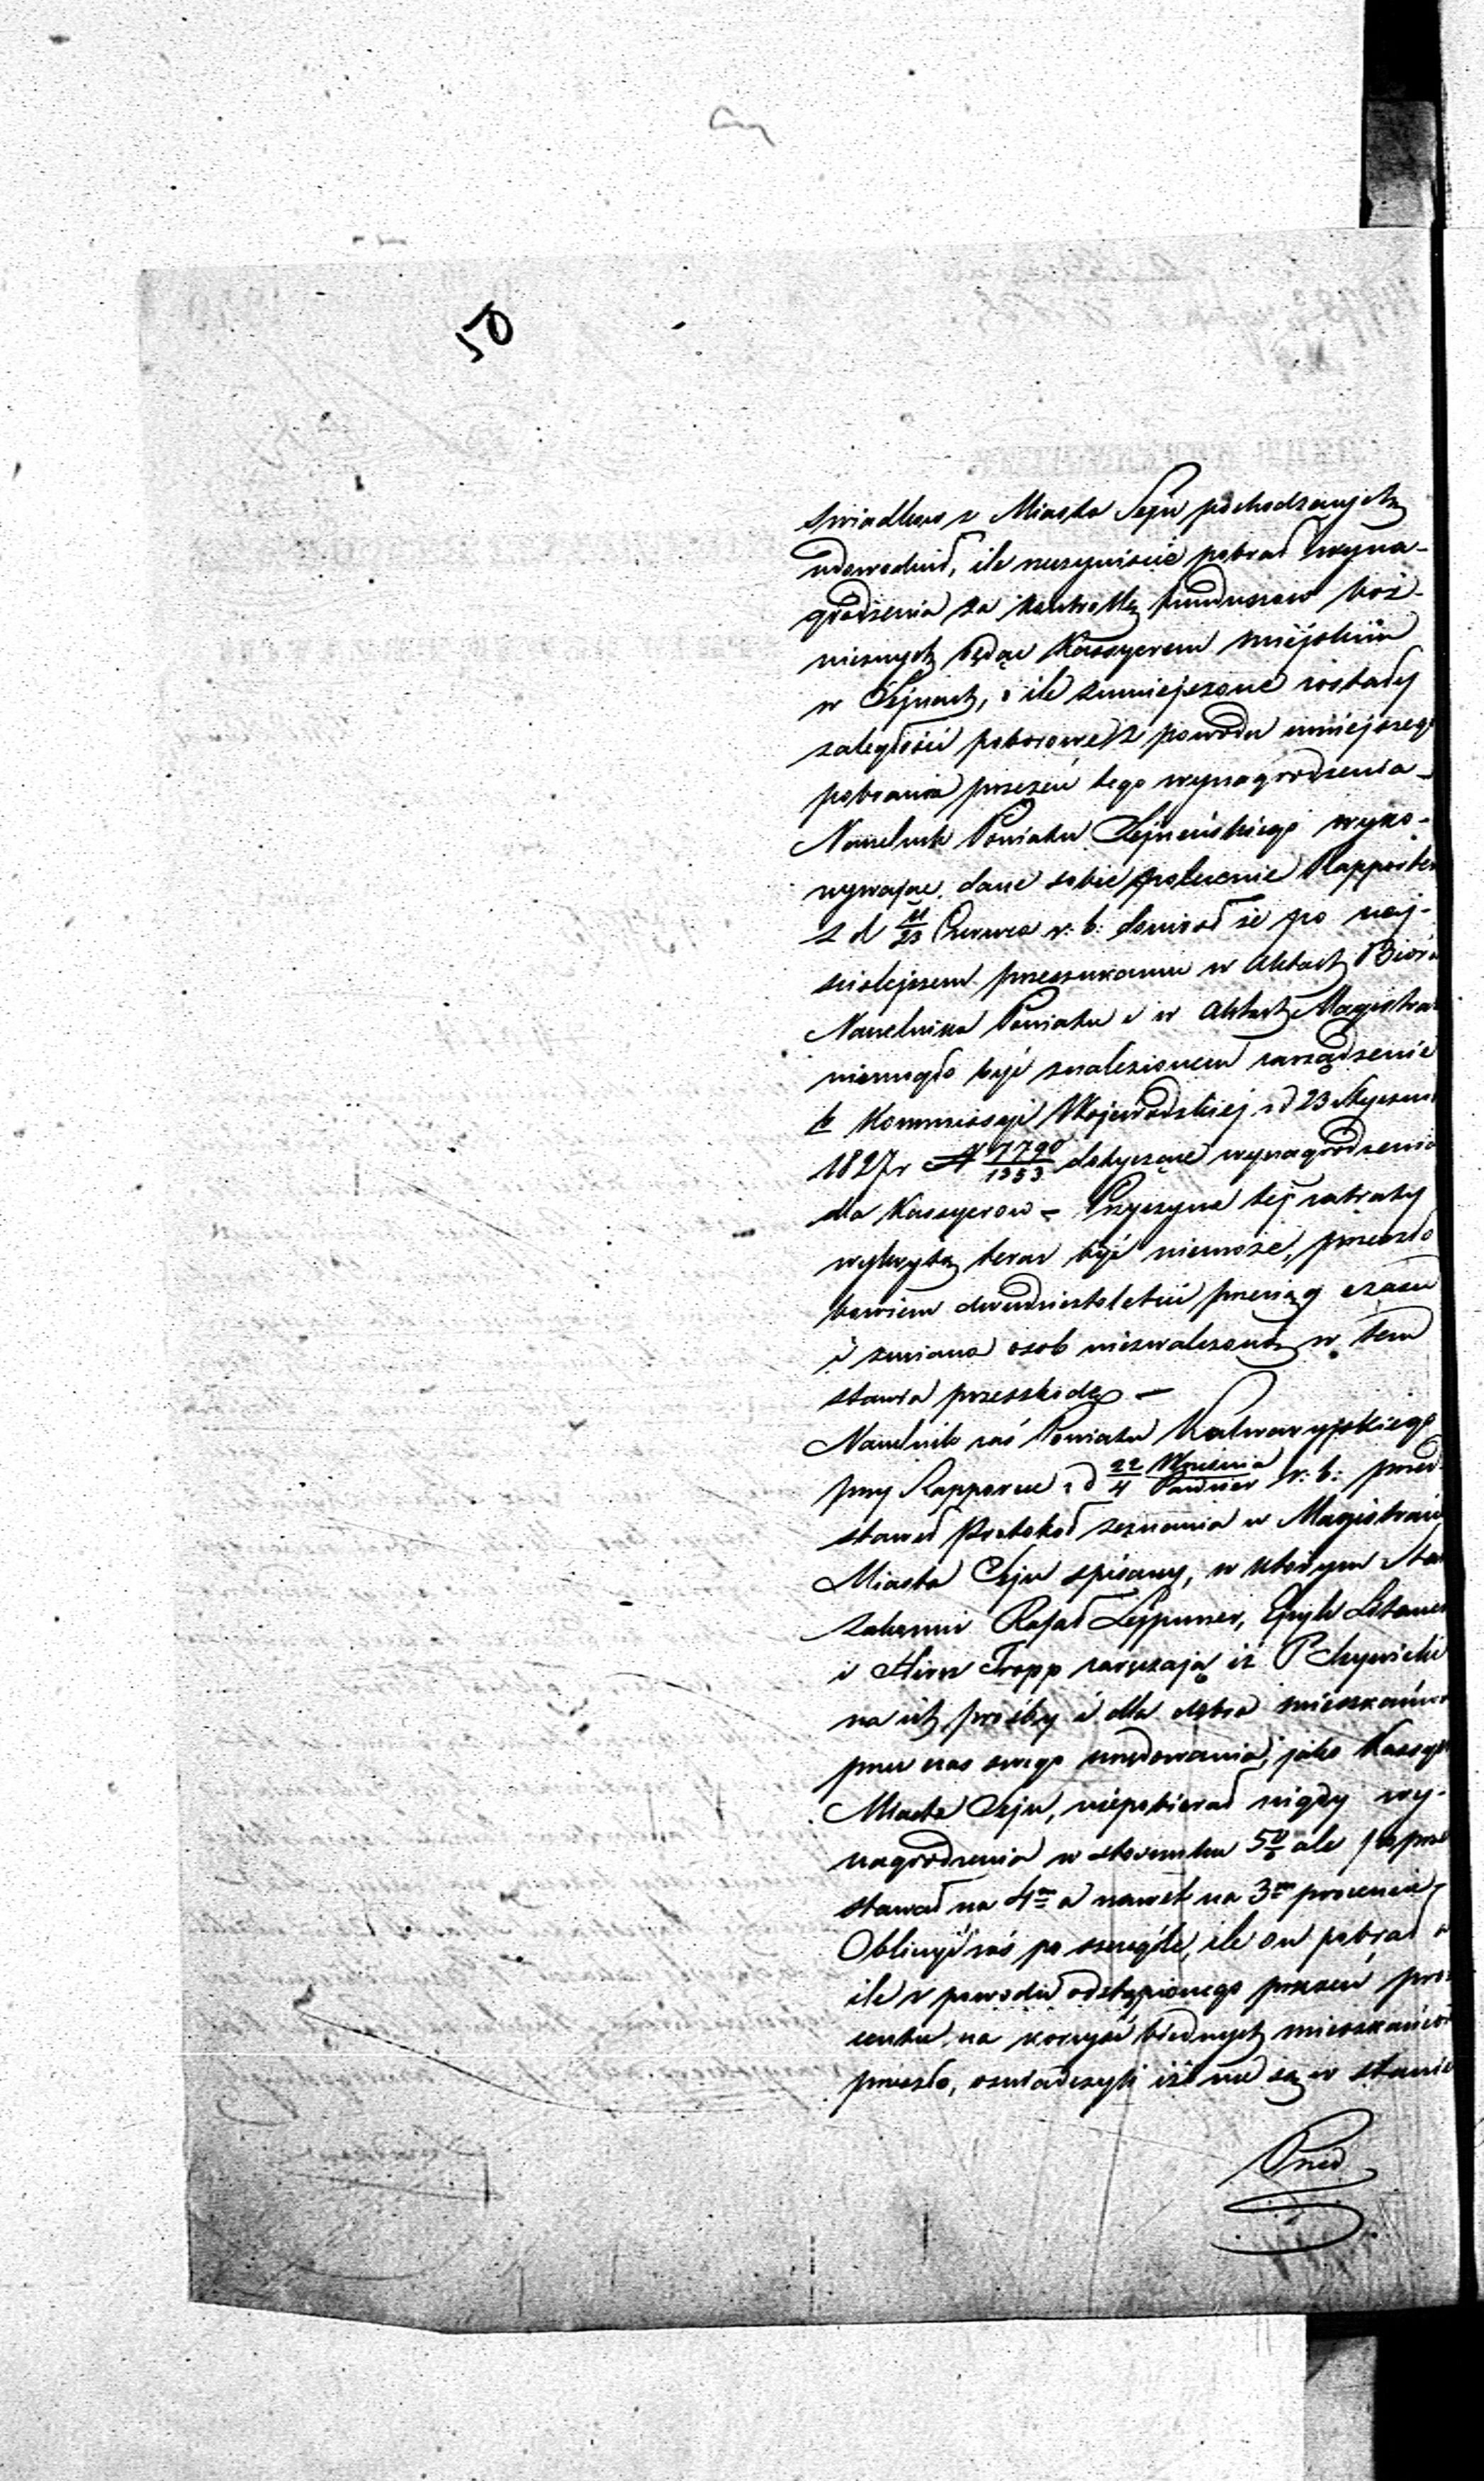 50
swiadków z Miasta Sejn pochodzących
udowodnił, ile rzeczywiscie pobrał wyna-
grodzenia za kontrollę funduszow boż-
niczych będąc Kassyerem miejskim
w Sejnach, i ile zmniejszone zostały
zaległości poborowe z powodu mniejszego
pobrania przezeń tego wynagrodzenia –
Naczelnik Powiatu Sejneńskiego wyko-
nywając dane sobie polecenie Rapportem
z d 11/23 Czerwca r: b: doniosł że po naj-
ściślejszem przeszukaniu w Aktach Biora
Naczelnika Powiatu i w Aktach Magistra
niemogło być znalezionem zarządzenie
b Kommissyi Wojewodzkiej z d 23 Stycznia
1827 r N 7790/1353 dotyczące wynagrodzenia
dla Kassyerow – Przyczyna tej zatraty
wykrytą teraz być niemoże, przeszło
bowiem dwudziestoletni przeciąg czasu
i zmiana osob niezwalczoną w tem
stawia przeszkodę –
Naczelnik zaś Powiatu Kalwaryjskiego
przy Rapporcie z d 22/4 Września/Paździer r: b: przed
stawił Protokoł zeznania w Magistracie
Miasta Sejn spisany, w którym Sta
zakonni Rafał Lejpuner, Eyzyk Litawer
i Hirsz Tropp zaręczają iż P
na ich prośby i dla dobra mieszkańców
przez czas swego urzędowania, jako Kassyer
Miasta Sejn, niepobierał nigdy wy-
nagrodzenia w stosunku 5% ale poprze
stawał na 4m a nawet na 3m procencie,
Obliczyć zaś po szczególe, ile on pobrał a
ile z powodu odstąpionego przezeń pro
centu na korzyść biednych mieszkańców
przeszło, oswiadczyli iż nie są w stanie
Przed